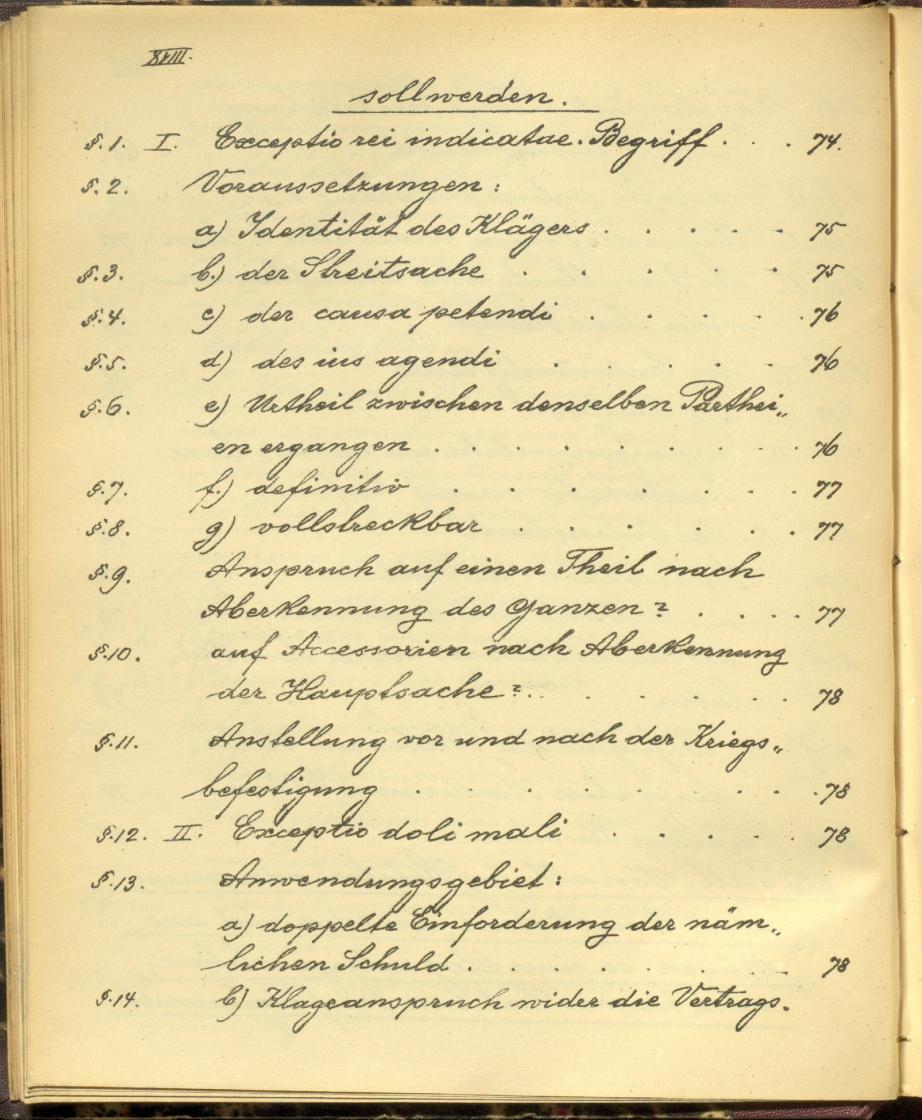 XVIII.
sollwerden.
§.1. I. Exceptio rei indicatae. Begriff . . . 74.
§.2. Voraussetzungen:
a) Identität des Klägers . . . . . 75
§.3. b.) der Streitsache . . . . . 75
§.4. c) der causa petendi . . . . . 76
§.5. d) des ius agendi . . . . 76
§.6. e) Urtheil zwischen denselben Parthei„
en ergangen . . . . . . . . . 76
§.7. f.) definitiv . . . . . . . 77
§.8. g) vollstreckbar . . . . . . 77
§.9. Anspruch auf einen Theil nach
Aberkennung des Ganzen? . . . . 77
§.10. auf Accessorien nach Aberkennung
der Hauptsache? . . . . . . 78
§.11. Anstellung vor und nach der Kriegs„
befestigung . . . . . . . . 78
§.12. II. Exceptio doli mali . . . . . 78
§.13. Anwendungsgebiet:
a) doppelte Einforderung der näm„
lichen Schuld . . . . . . . 78
§.14. b) Klageanspruch wider die Vertrags.